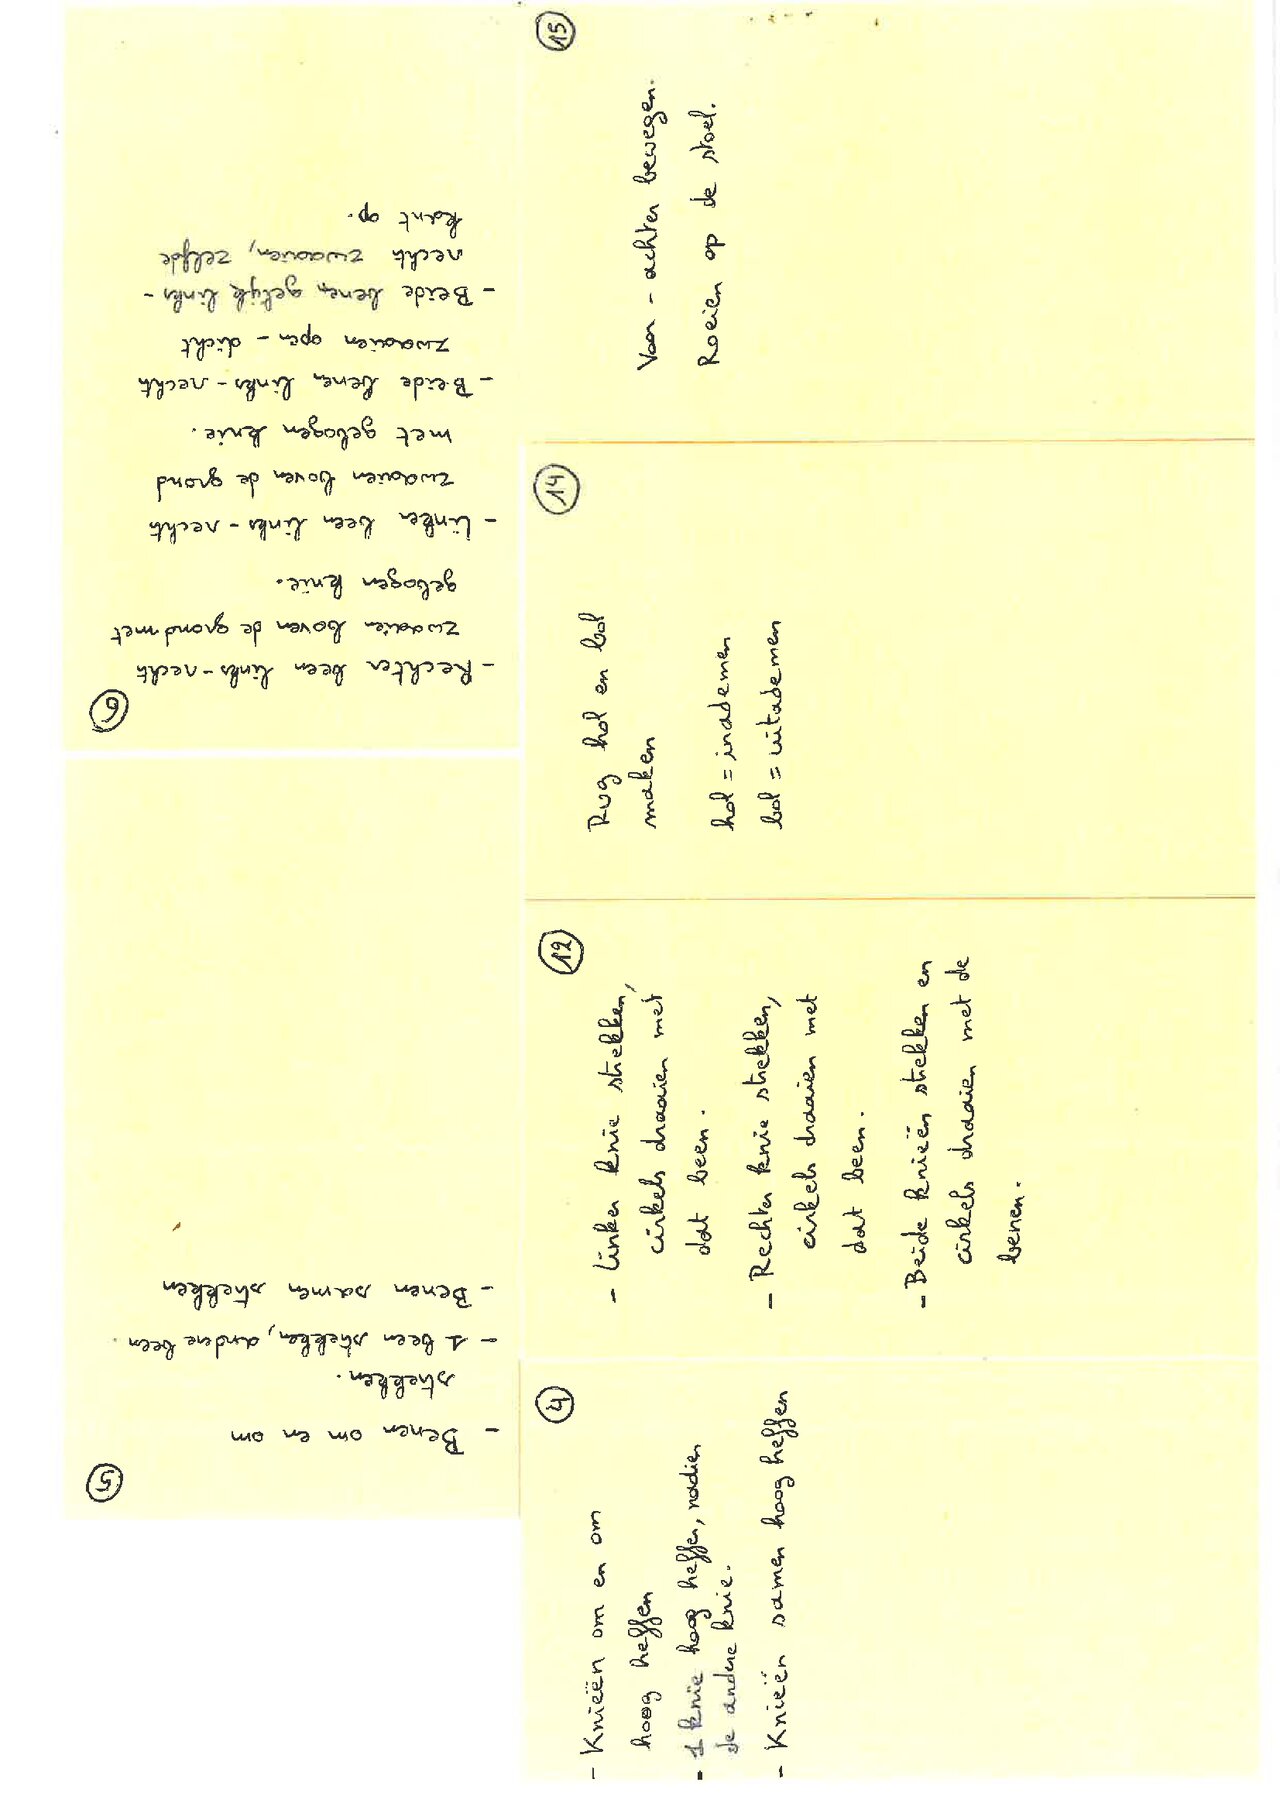 4
- Knieën om en om
hoog heffen
- 1 knie hoog heffen, nadien
de andere knie.
- Knieën samen hoog heffen
5
- Benen om en om
strekken.
- 1 been strekken, andere been.
- Benen samen strekken
6
- Rechter been links-recht
zwaaien boven de grond met
gebogen knie.
- Linker been links-recht
zwaaien boven de grond
met gebogen knie.
- Beide benen links-recht
zwaaien open - dicht
- Beide benen gelijk links-
recht zwaaien, zelfde
kant op.
12
- Linker knie strekken,
cirkels draaien met
dat been.
- Rechter knie strekken,
cirkels draaien met
dat been.
- Beide knieën strekken en
cirkels draaien met de
benen.
14
Rug hol en bol
maken
hol = inademen
bol = uitademen
15
Voor - achter bewegen.
Roeien op de stoel.